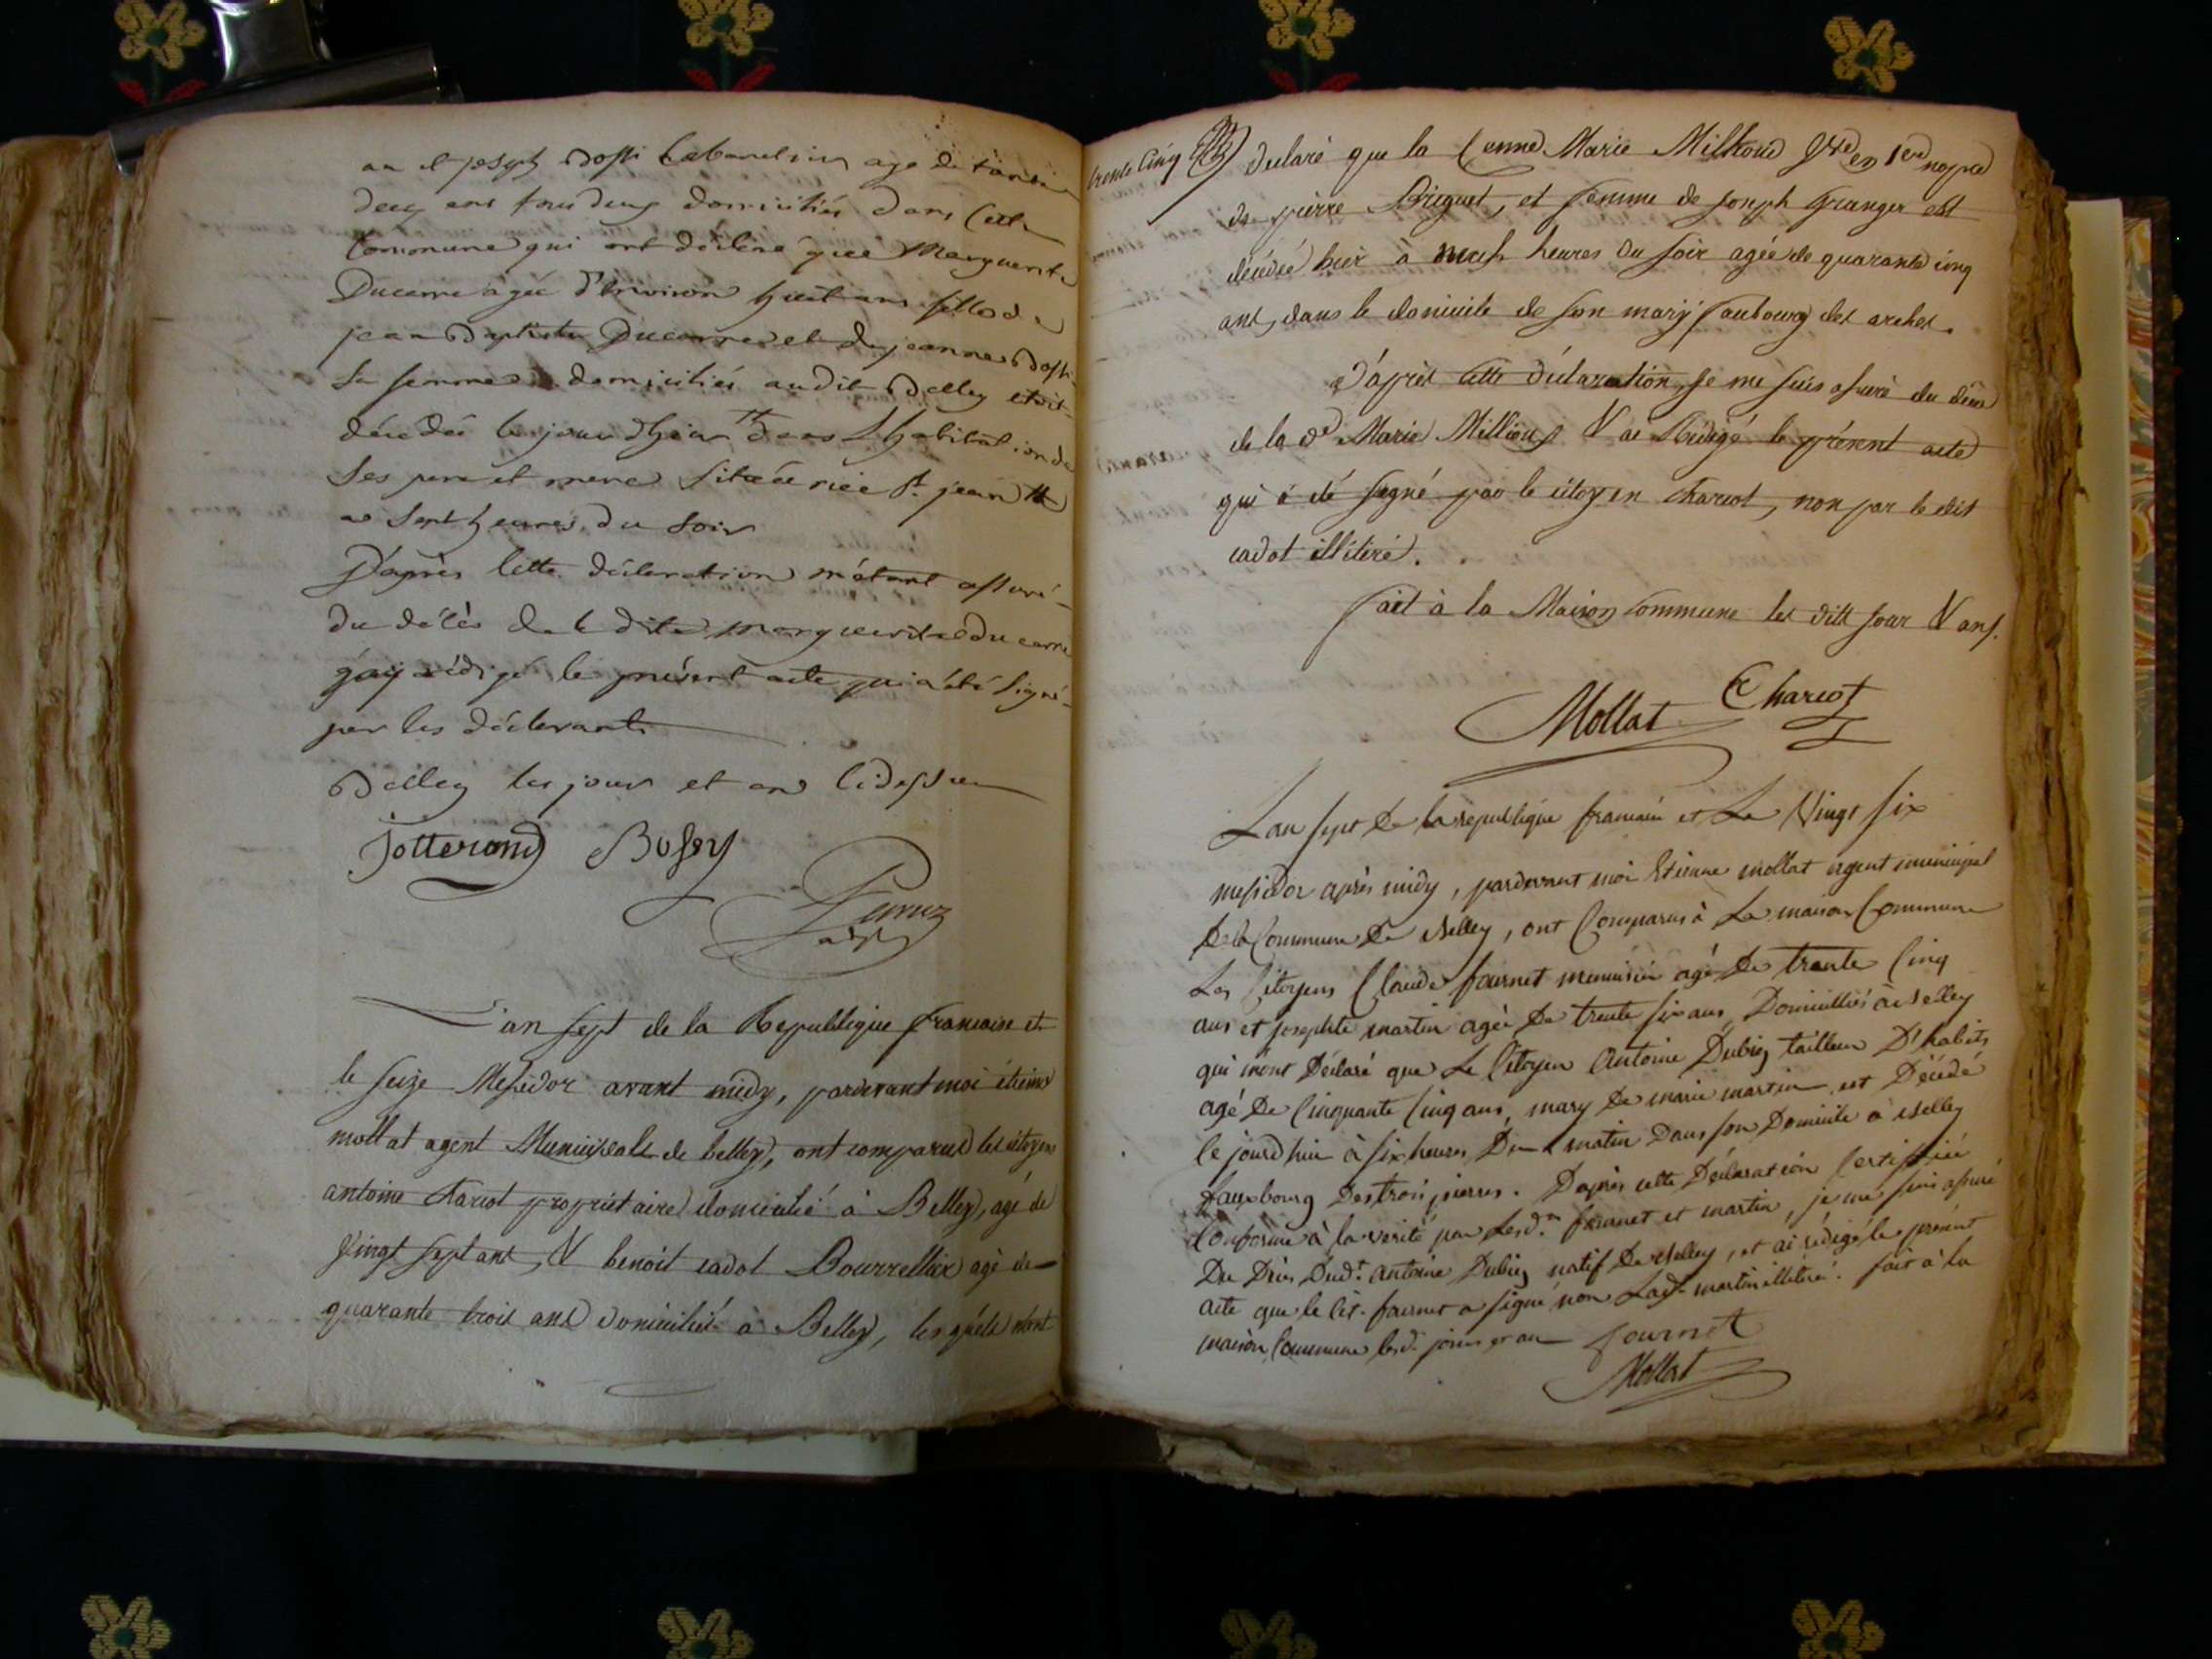 an et joseph Bossi age de trente
deux ans tous deux domiciliés dans cette
Commune qui ont déclaré que Marguerite
Ducarre agée d'environ huit ans fille de
jean Baptiste Ducarre et de jeanne Bossi
Sa femme domiciliés audit Belley etoit
décédée le jour d'hier dans l'habitation de
Ses pere et mere Située rue St. jean
a Sept heures du Soir
D'après cette déclaration m'étant assuré
du décès de la dite marguerite Ducarre
j'ay rédigé le présent acte qui a été signé
par les déclarants
Belley les jour et an cidessus
Jotterand Bossy
L'an sept de la Republique francaise et
le seize Messidor avant midy, pardevant moi étienne
mollat agent Municipale de belley, ont comparus les citoyens
antoine Chariot propriétaire domicilié à Belley, agé de
Vingt sept ans, & benoit cadot Bourrellier agé de
quarante trois ans domicilié à Belley, lesquels m'ont
trente cinq
declaré que la Cenne Marie Millioud Vve en 1ere nopce
de pierre Briguet, et femme de Joseph Granger est
décédée hier à neuf heures du soir agée de quarante cinq
ans, dans le domicile de son mary faubourg des arches.
D'après cette déclaration, je me suis assuré du décès
de la de Marie Millioud & ai Rédigé le présent acte
qui à été signé par le citoyen Chariot, non par le dit
cadot illitiré.
fait à la Maison Commune les dits jour & an.
Mollat Chariot
Lan sept De la republique francaise et Le Vingt six
messidor après midy, pardevant moi Etienne mollat agent municipal
De la Commune De Belley, ont Comparus à La maison Commune
Les Citoyens Claude fournet menuisier agé De trente Cinq
ans et josephte martin agée De trente six ans, Domicilliés à Belley
qui m'ont Déclaré que Le Citoyen Antoine Dubiez tailleur D'habits
agé De Cinquante Cinq ans, mary De marie martin, est Décédé
Cejourd'hui à six heures Du matin Dans son Domicile à Belley
fauxbourg Des trois pierres. D'après cette Déclaration Certiffiée
Conforme à la verité par Lesd. fournet et martin, je me suis assuré
Du Décès Dudt. Antoine Dubiez natif De Belley, et ai rédigé le présent
acte que le Cit. fournet a signé non Lad. martin illetiré. fait à la
maison Commune lesd. jours et an fournet
Mollat